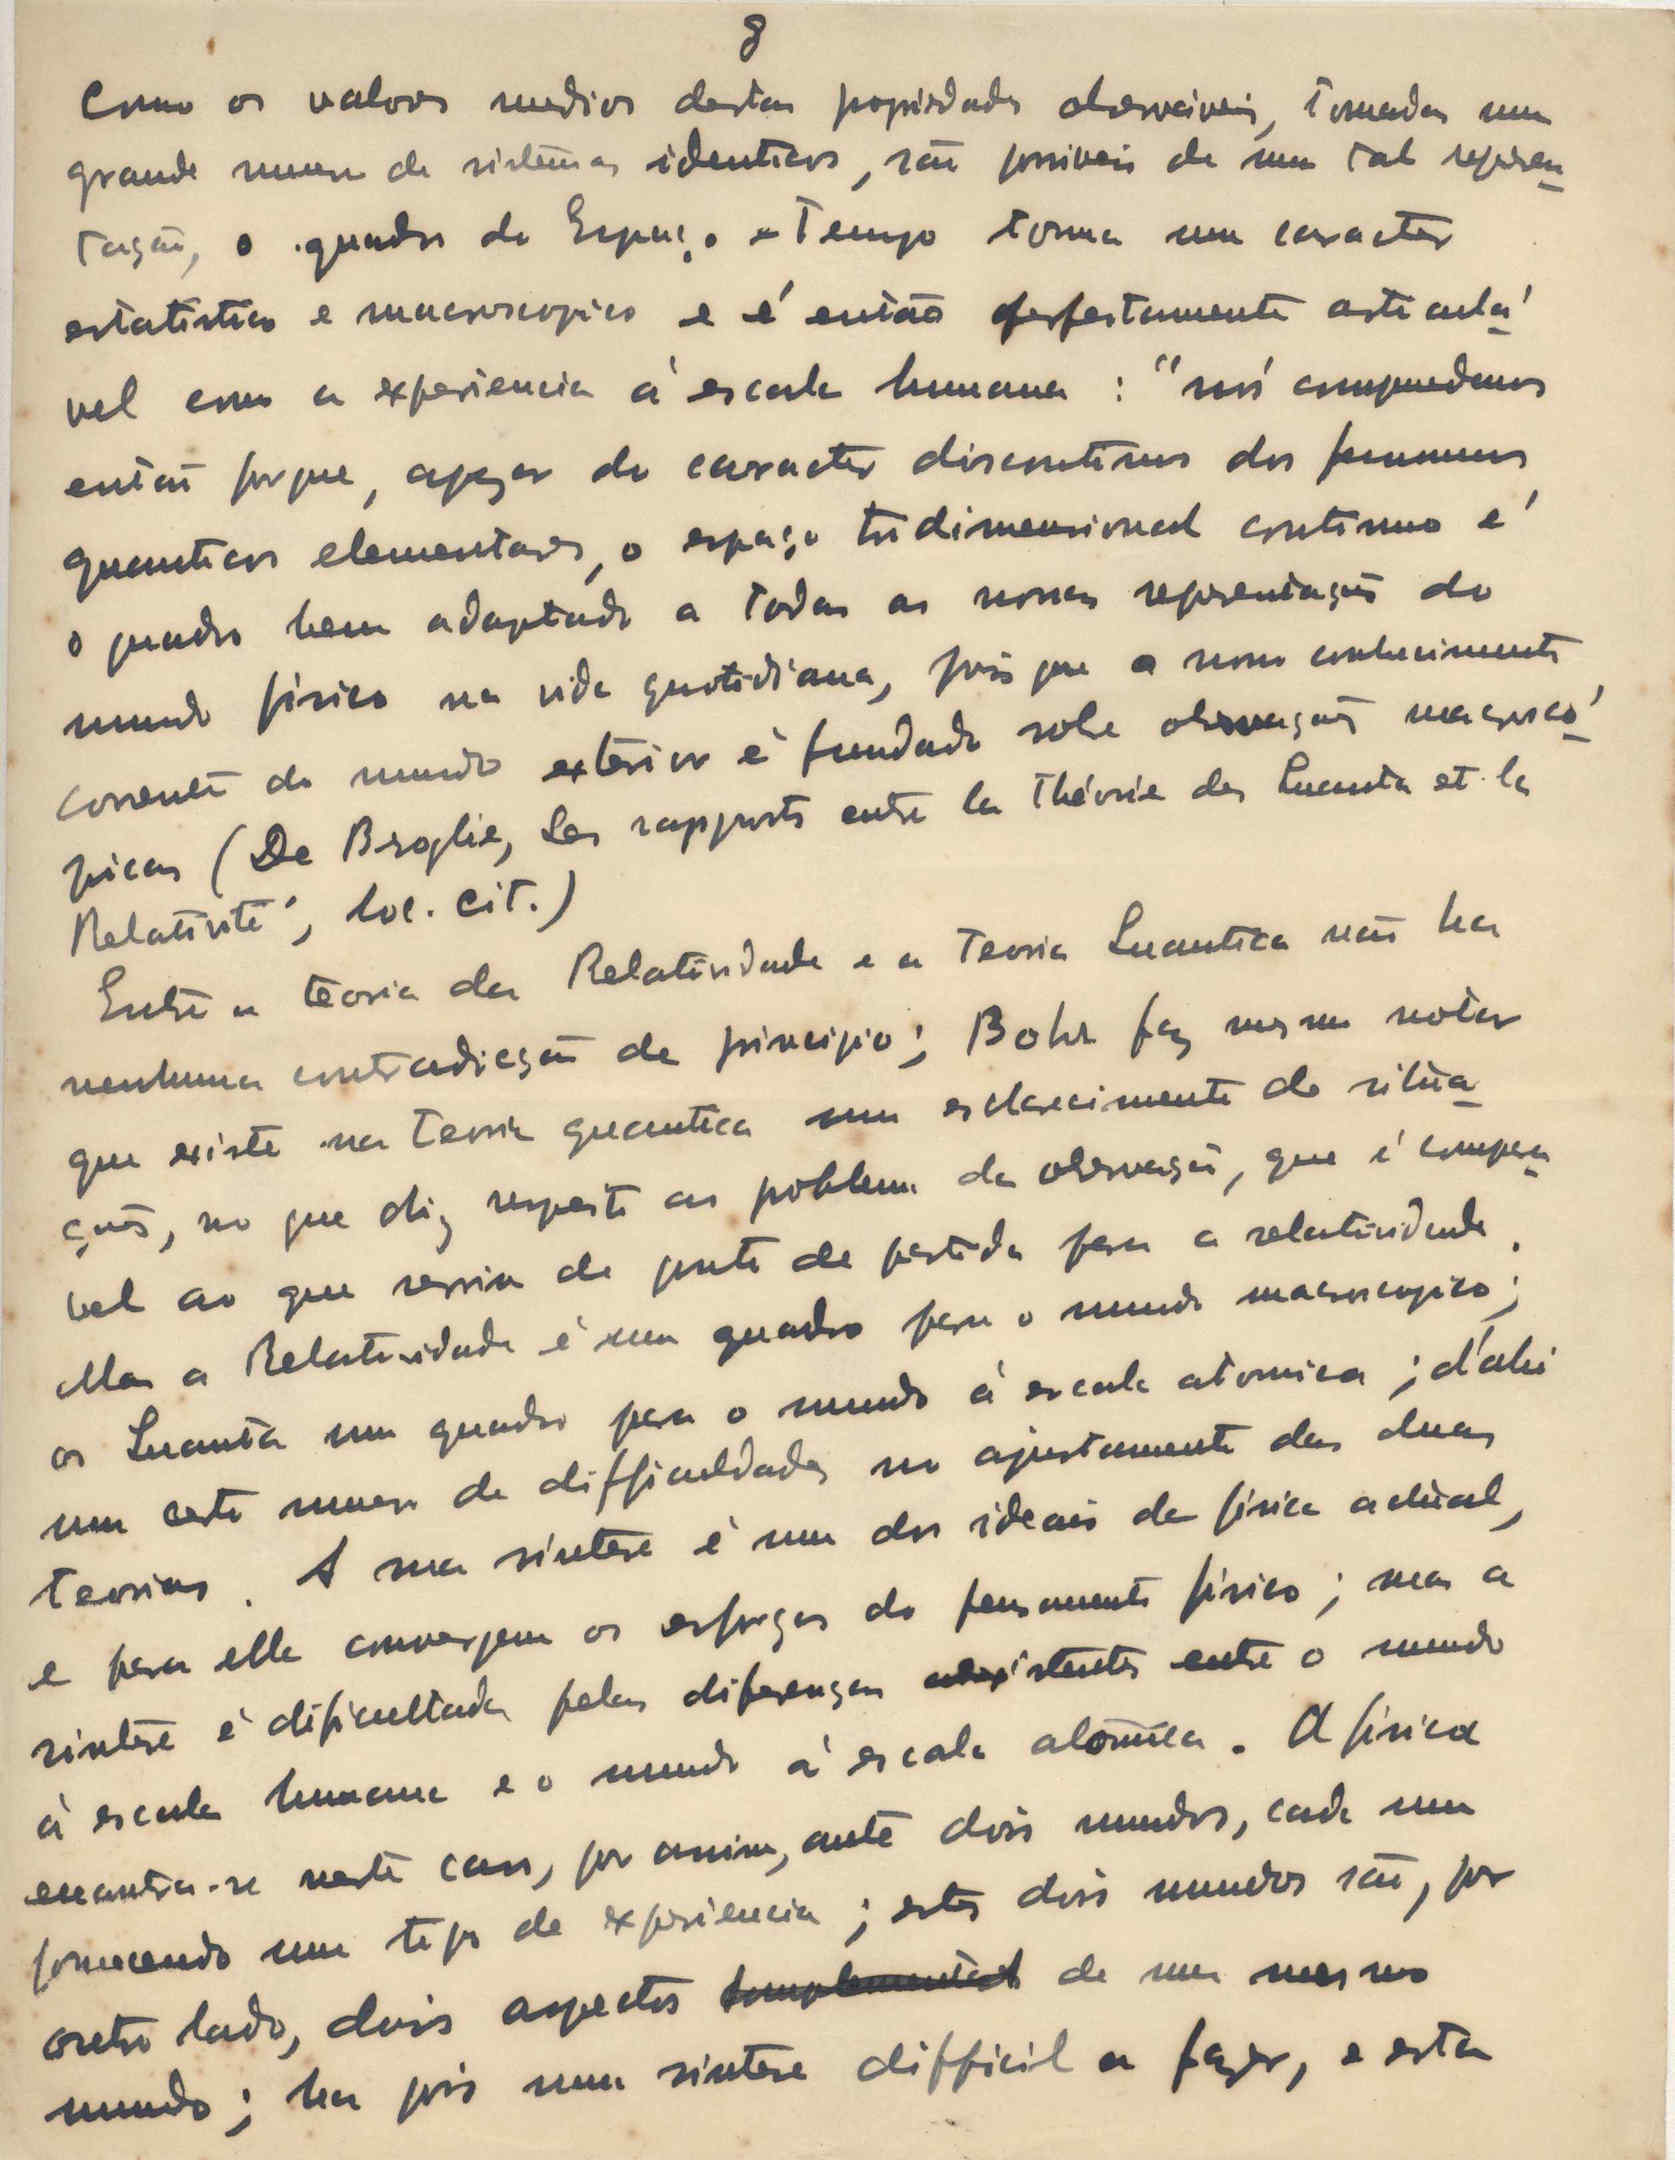 8
Como os valores medios destas propriedades observáveis, tomadas num
grande numero de sistemas identicos, são possiveis de uma tal represen-
tação, o quadro do Espaço-Tempo toma um caracter
estatistico e macroscopico e é então perfeitamente articulá-
vel com a experiencia á escala humana : "nós compreendemos
então porque, apezar do caracter discontinuo dos fenomenos
quanticos elementares, o espaço tridimensional continuo é
o quadro bem adaptado a todas as nossas representações do
mundo fisico na vida quotidiana, pois que o nosso conhecimento
corrente do mundo exterior é fundado sobre observações macroscó-
picas (De Broglie, Les rapports entre la Théorie des Quanta et la
Relativité, loc. cit.)
Entre a teoria da Relatividade e a Teoria Quantica não ha
nenhuma contradicção de principio; Bohr faz mesmo notar
que existe na teoria quantica um esclarecimento de situa-
ções, no que diz respeito ao problema da observação, que é compara-
vel ao que serviu de ponto de partida para a relatividade.
Mas a Relatividade é um quadro para o mundo macroscopico;
os Quanta um quadro para o mundo á escala atomica ; d'ahi
um certo numero de difficuldades no ajustamento das duas
teorias. A sua sintese é um dos ideais da fisica actual,
e para ella convergem os esforços do pensamento fisico ; mas a
sintese é dificultada pelas diferenças existentes entre o mundo
á escala humana e o mundo á escala atómica. A fisica
encontra-se neste caso, por assim, ante dois mundos, cada um
fornecendo um tipo de experiencia ; estes dois mundos são, por
outro lado, dois aspectos de um mesmo
mundo ; ha pois uma sintese difficil a fazer, e esta